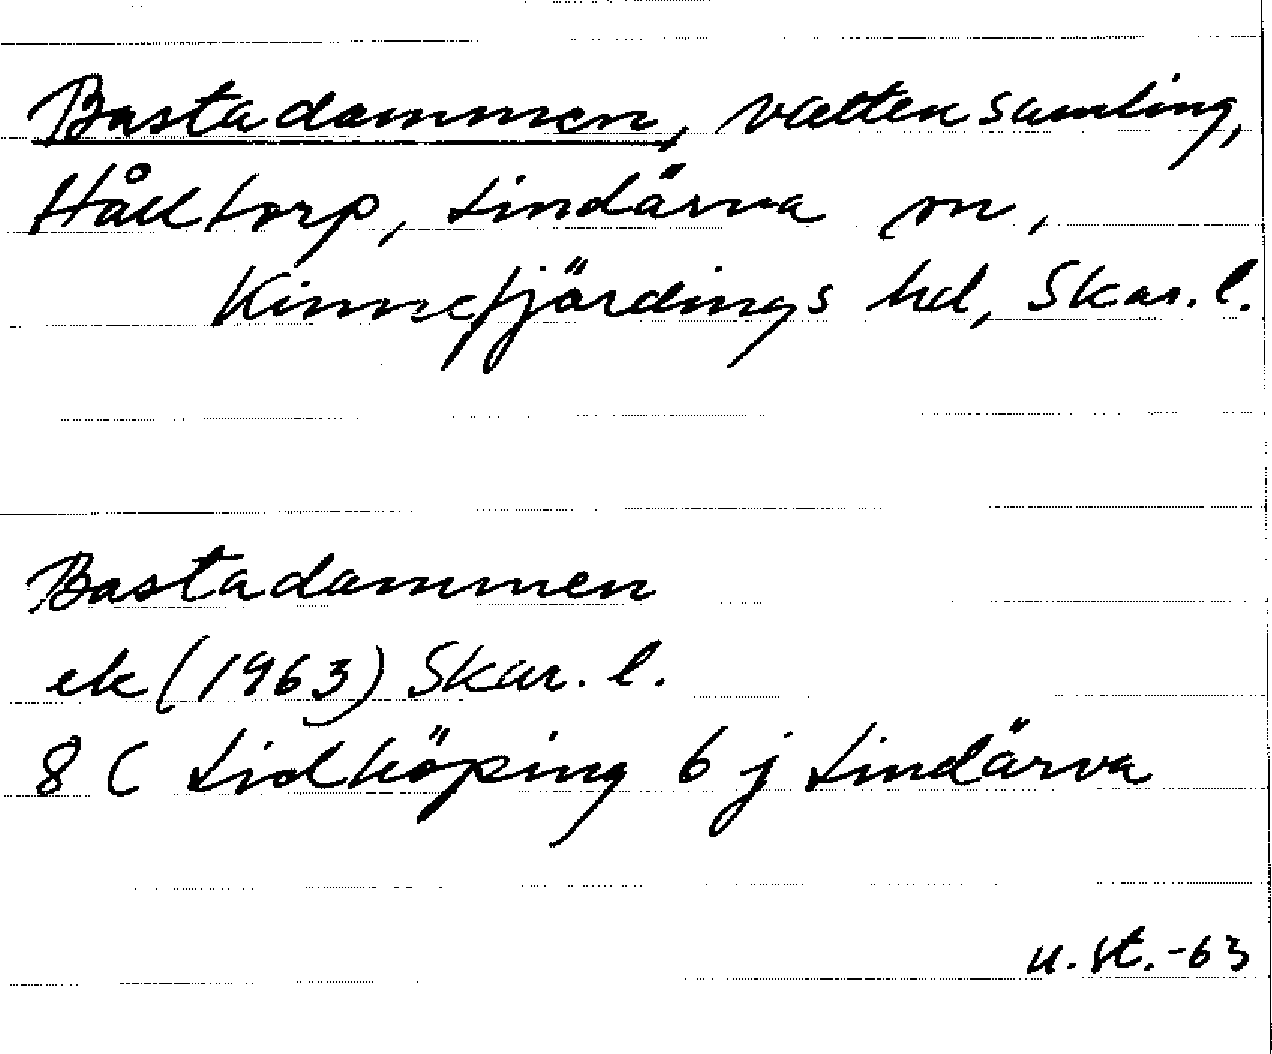 Bastadammen, vattensamling,
Hålltorp, Lindärva sn,
Kinnefjärdings hd, Skar. l.
Bastadammen
ek (1963) Skar. l.
8 C Lidköping 6 j Lindärva
u. st. -63